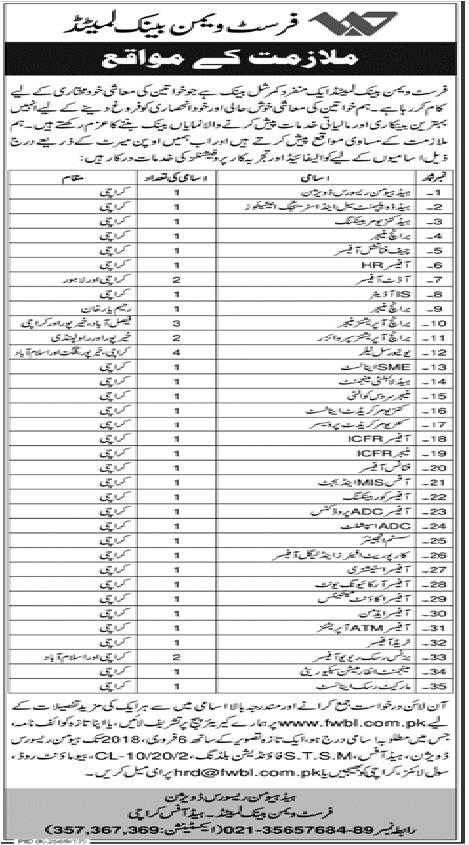 فرسٹ ویمن بینک لمیٹڈ
ملازمت کے مواقع
فرسٹ ویمن بینک لمیٹڈ ایک منفرد کمرشل بینک ہے جو خواتین کی معاشی خود مختاری کے لیے
کام کر رہا ہے۔ ہم خواتین کی معاشی خوش حالی اور خود انحصاری کو فروغ دینے کے لیے انہیں
بہترین بینکاری اور مالیاتی خدمات پیش کرنے والا نمایاں بینک بننے کا عزم رکھتے ہیں۔ ہم
ملازمت کے مساوی مواقع پیش کرتے ہیں اور اب ہمیں اوپن میرٹ کے ذریعے درج
ذیل اسامیوں کے لیے کوالیفائیڈ اور تجربہ کار پروفیشنلز کی خدمات درکار ہیں:
نمبر شمار اسامی اسامی کی تعداد مقام
1۔ ہیڈ ہیومن ریسورس ڈویژن 1 کراچی
2۔ ہیڈ ڈویلپمنٹ سیل اینڈ اسٹریٹجک انیشیٹوز 1 کراچی
3۔ ہیڈ کنزیومر بینکنگ 1 کراچی
4۔ برانچ منیجر 1 کراچی
5۔ چیف فنانشل آفیسر 1 کراچی
6۔ آفیسر HR 1 کراچی
7۔ آڈٹ آفیسر 2 کراچی اور لاہور
8۔ IS آڈیٹر 1 کراچی
9۔ برانچ منیجر 1 رحیم یار خان
10۔ برانچ آپریشنز منیجر 3 فیصل آباد، خیر پور اور کراچی
11۔ برانچ آپریشنز سپروائزر 2 خیر پور اور راولپنڈی
12۔ یونیورسل ٹیلر 4 کراچی، خیر پور، گلگت اور اسلام آباد
13۔ SME اینالسٹ 1 کراچی
14۔ ہیڈ لائبلٹی منیجمنٹ 1 کراچی
15۔ منیجر سروس کوالٹی 1 کراچی
16۔ کنزیومر کریڈٹ اینالسٹ 1 کراچی
17۔ کنزیومر کریڈٹ پروسیسر 1 کراچی
18۔ آفیسر ICFR 1 کراچی
19۔ منیجر ICFR 1 کراچی
20۔ فنانس آفیسر 1 کراچی
21۔ آفس MIS اینڈ بجٹ 1 کراچی
22۔ آفیسر کور بینکنگ 1 کراچی
23۔ آفیسر ADC پروڈکٹس 1 کراچی
24۔ ADC اسپیشلسٹ 1 کراچی
25۔ سسٹم انجینئر 1 کراچی
26۔ کارپوریٹ افیئرز اینڈ لیگل آفیسر 1 کراچی
27۔ آفیسر اسٹیشنری 1 کراچی
28۔ آفیسر آرکائیونگ یونٹ 1 کراچی
29۔ آفیسر اکاؤنٹ مینٹیننس 1 کراچی
30۔ آفیسر ایڈمن 1 کراچی
31۔ آفیسر ATM آپریشنز 1 کراچی
32۔ ٹریڈ آفیسر 1 کراچی
33۔ بزنس رسک ریویو آفیسر 2 کراچی اور اسلام آباد
34۔ منیجمنٹ انفارمیشن سیکیورٹی 1 کراچی
35۔ مارکیٹ رسک اینالسٹ 1 کراچی
آن لائن درخواست جمع کرانے اور مندرجہ بالا اسامی میں سے ہر ایک کی مزید تفصیلات کے
لیے www.fwbl.com.pk پر ہمارے کیریئر پیج پر تشریف لائیں، یا اپنا تازہ کوائف نامہ،
جس میں مطلوبہ اسامی درج ہو، ایک تازہ تصویر کے ساتھ 6 فروری، 2018 تک ہیومن ریسورس
ڈویژن، ہیڈ آفس، S.T.S.M فاؤنڈیشن بلڈنگ، CL-10/20/2، بیوماؤنٹ روڈ،
سول لائنز، کراچی کو بھیجیں یا hrd@fwbl.com.pk پر ای میل کریں۔
ہیڈ ہیومن ریسورس ڈویژن
فرسٹ ویمن بینک لمیٹڈ۔ ہیڈ آفس کراچی
رابطہ نمبر 89-35657684-021 (ایکسٹینشنز: 357,367,369)